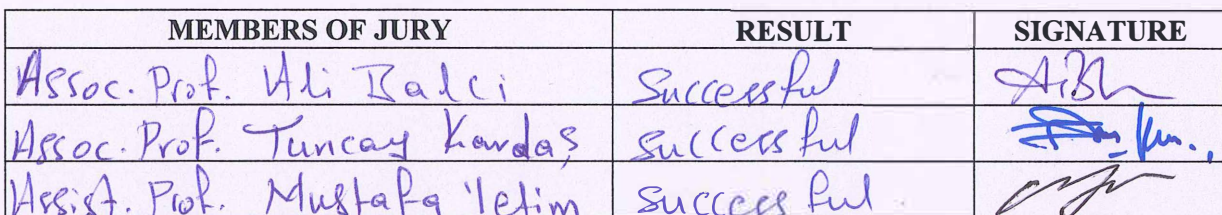 MEMBERS OF JURY RESULT SIGNATURE
Assoc. Prof. Ali Balci Successful
Assoc. Prof. Tuncay Kardaş Successful
Assist. Prof. Mustafa Yetim Successful